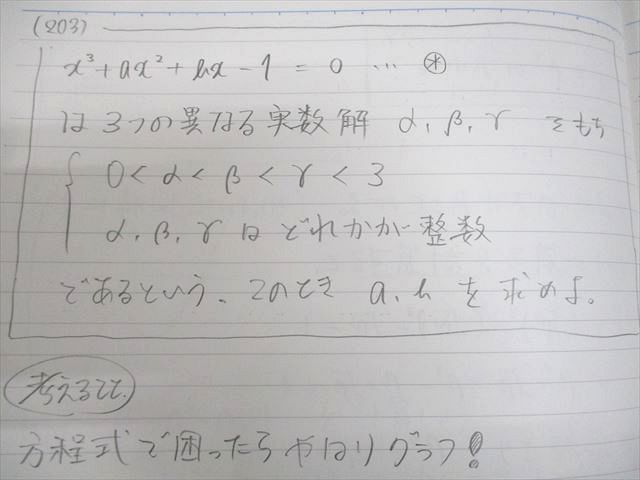 (203)
x³+ax²+bx-1 = 0 … ㊍
は3つの異なる実数解 α, β, γ をもち
0 < α < β < γ < 3
α, β, γ は どれかが整数
であるという。このとき a, b を求めよ。
考えること。
方程式で困ったらやはりグラフ!